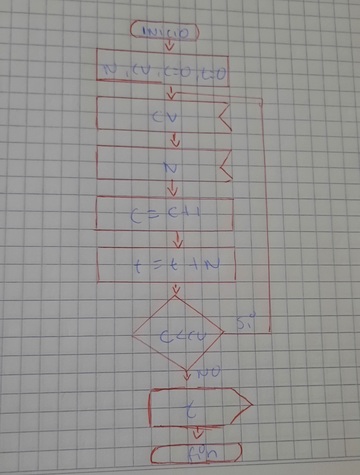 INICIO
N, CV, C=0, t=0
CV
N
C = C+1
t = t + N
C<CV
Si
NO
t
Fin